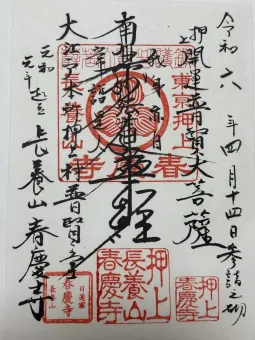 令和六年四月十四日参詣之砌
押上
開運普賢大菩薩
東京押上
南無妙法蓮華経
春慶寺
大江戸本所押上村普賢堂
元和元年起立
長養山春慶寺
押上
春慶寺
押上
長養山
春慶寺
日蓮宗
春慶寺
長養山